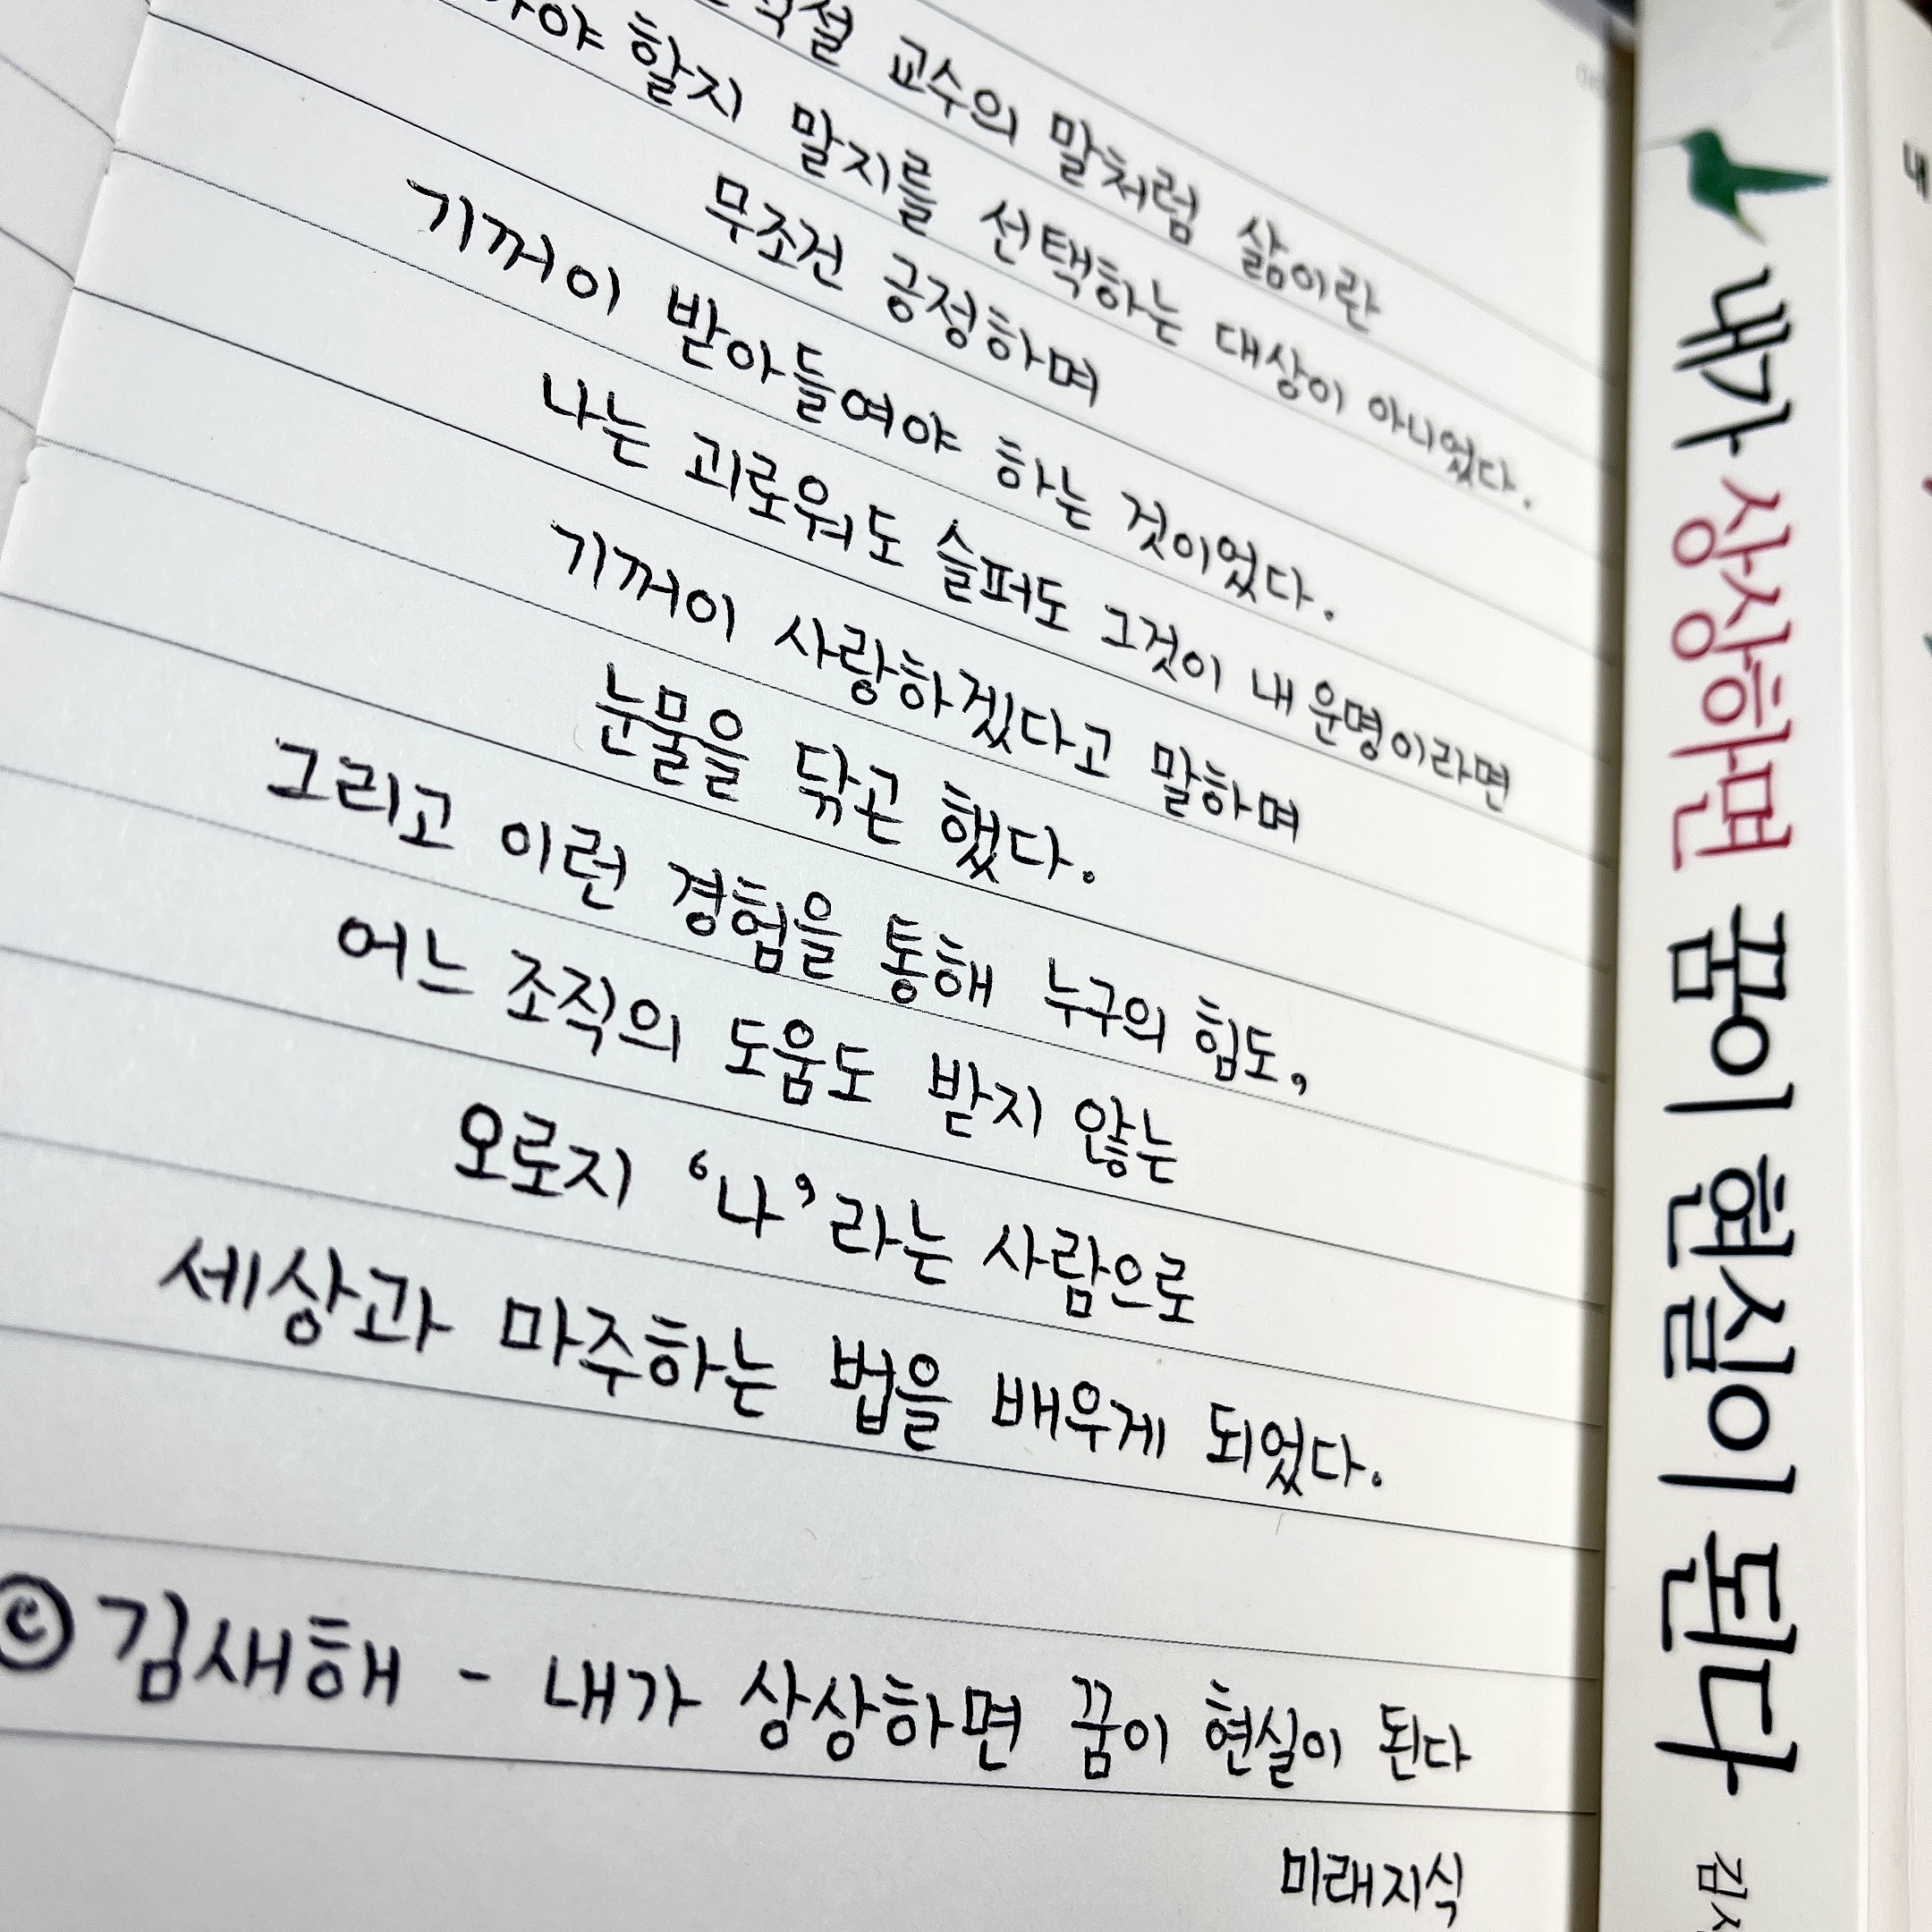 교수의 말처럼 삶이란
할지 말지를 선택하는 대상이 아니었다.
무조건 긍정하며
기꺼이 받아들여야 하는 것이었다.
나는 괴로워도 슬퍼도 그것이 내 운명이라면
기꺼이 사랑하겠다고 말하며
눈물을 닦곤 했다.
그리고 이런 경험을 통해 누구의 힘도,
어느 조직의 도움도 받지 않는
오로지 ‘나’라는 사람으로
세상과 마주하는 법을 배우게 되었다.
ⓒ 김새해 - 내가 상상하면 꿈이 현실이 된다
미래지식
내가 상상하면 꿈이 현실이 된다